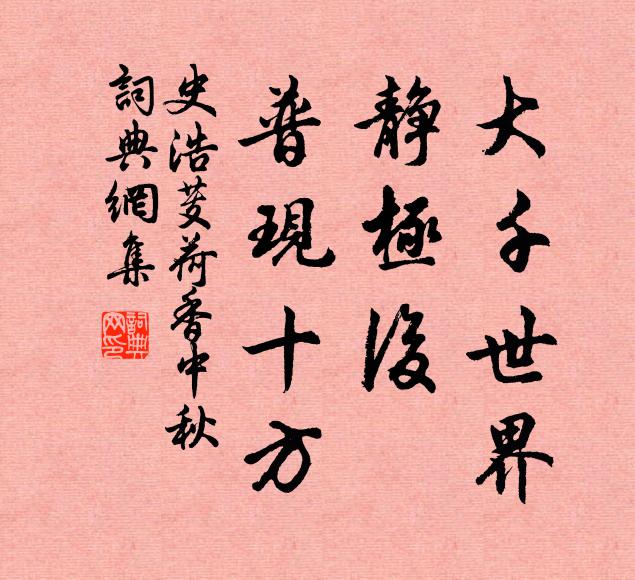 大千世界
靜極後
普現十方
史浩芰荷香中秋
詞典網集
詞典網印